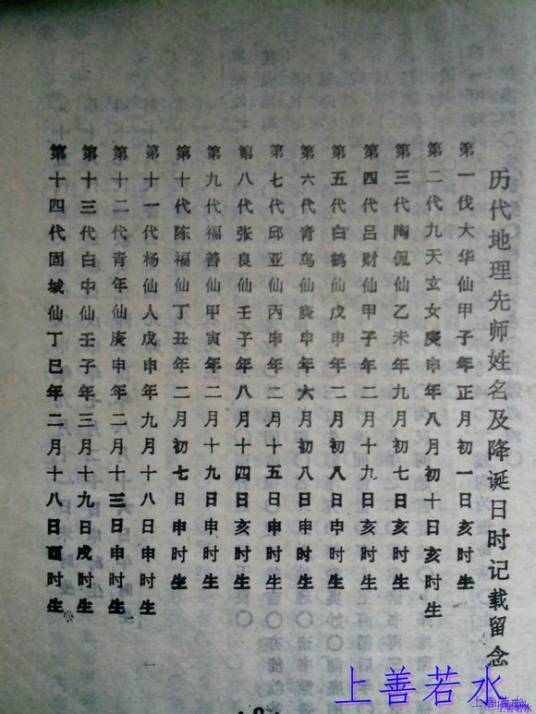 历代地理先师姓名及降诞日时记载留念
第一伐大华仙甲子年正月初一日亥时生
第二代九天玄女庚申年八月初十日亥时生
第三代陶侃仙乙未年九月初七日亥时生
第四代吕财仙甲子年二月十九日亥时生
第五代白鹤仙戊申年二月初八日亥时生
第六代青鸟仙庚申年六月初八日申时生
第七代邱亚仙丙申年二月十五日申时生
第八代张良仙壬子年八月十四日亥时生
第九代福善仙甲寅年二月十九日申时生
第十代陈福仙丁丑年二月初七日申时生
第十一代杨仙人戊申年九月十八日申时生
第十二代青年仙庚申年二月十三日申时生
第十三代白中仙壬子年三月十九日戌时生
第十四代固城仙丁巳年二月十八日酉时生
上善若水
上善若水
上善若水